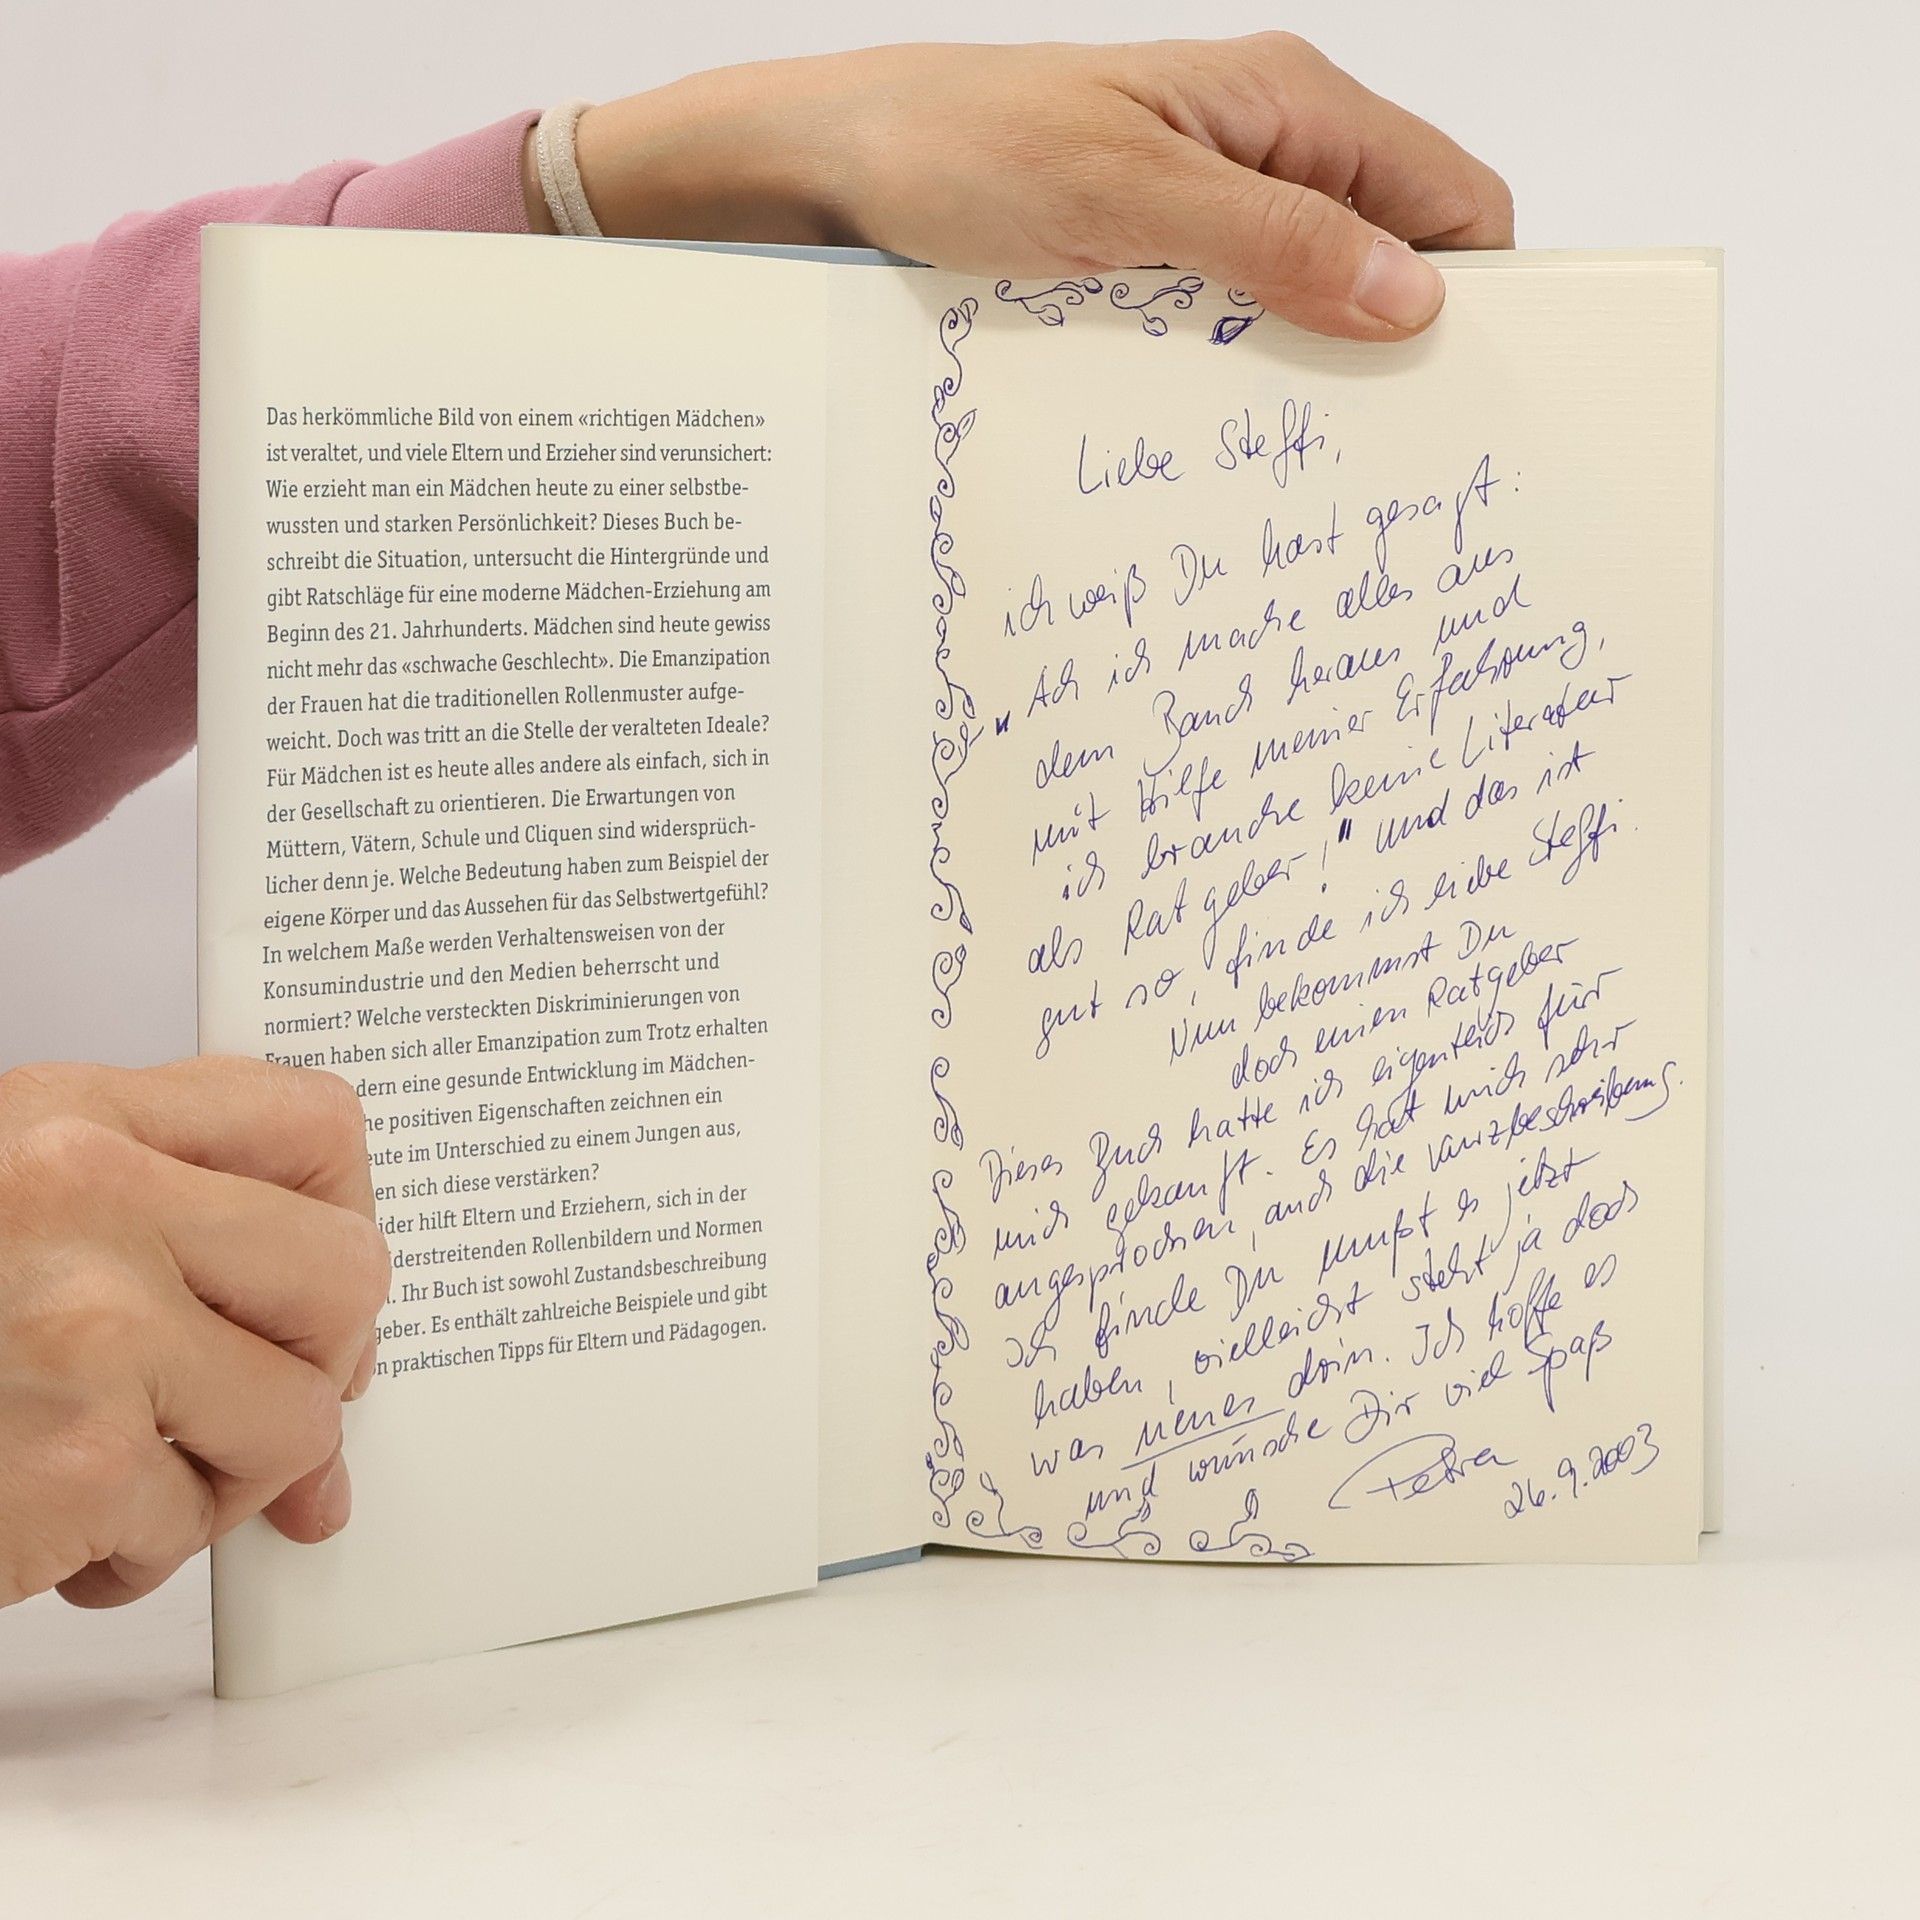 Das herkömmliche Bild von einem «richtigen Mädchen»
ist veraltet, und viele Eltern und Erzieher sind verunsichert:
Wie erzieht man ein Mädchen heute zu einer selbstbe-
wussten und starken Persönlichkeit? Dieses Buch be-
schreibt die Situation, untersucht die Hintergründe und
gibt Ratschläge für eine moderne Mädchen-Erziehung am
Beginn des 21. Jahrhunderts. Mädchen sind heute gewiss
nicht mehr das «schwache Geschlecht». Die Emanzipation
der Frauen hat die traditionellen Rollenmuster aufge-
weicht. Doch was tritt an die Stelle der veralteten Ideale?
Für Mädchen ist es heute alles andere als einfach, sich in
der Gesellschaft zu orientieren. Die Erwartungen von
Müttern, Vätern, Schule und Cliquen sind widersprüch-
licher denn je. Welche Bedeutung haben zum Beispiel der
eigene Körper und das Aussehen für das Selbstwertgefühl?
In welchem Maße werden Verhaltensweisen von der
Konsumindustrie und den Medien beherrscht und
normiert? Welche versteckten Diskriminierungen von
Frauen haben sich aller Emanzipation zum Trotz erhalten
dern eine gesunde Entwicklung im Mädchen-
he positiven Eigenschaften zeichnen ein
eute im Unterschied zu einem Jungen aus,
en sich diese verstärken?
ider hilft Eltern und Erziehern, sich in der
iderstreitenden Rollenbildern und Normen
. Ihr Buch ist sowohl Zustandsbeschreibung
geber. Es enthält zahlreiche Beispiele und gibt
n praktischen Tipps für Eltern und Pädagogen.
Liebe Steffi,
ich weiß Du hast gesagt:
"Ach ich mache alles aus
dem Bauch heraus und
mit Hilfe meiner Erfahrung,
ich brauche keine Literatur
als Ratgeber!" und das ist
gut so, finde ich liebe Steffi.
Nun bekommst Du
doch einen Ratgeber
Dieses Buch hatte ich eigentlich für
mich gekauft. Es hat mich sehr
angesprochen, auch die Kurzbeschreibung.
Ich finde Du mußt es jetzt
haben, vielleicht steht ja doch
was neues drin. Ich hoffe es
und wünsche Dir viel Spaß
Petra
26.9.2003